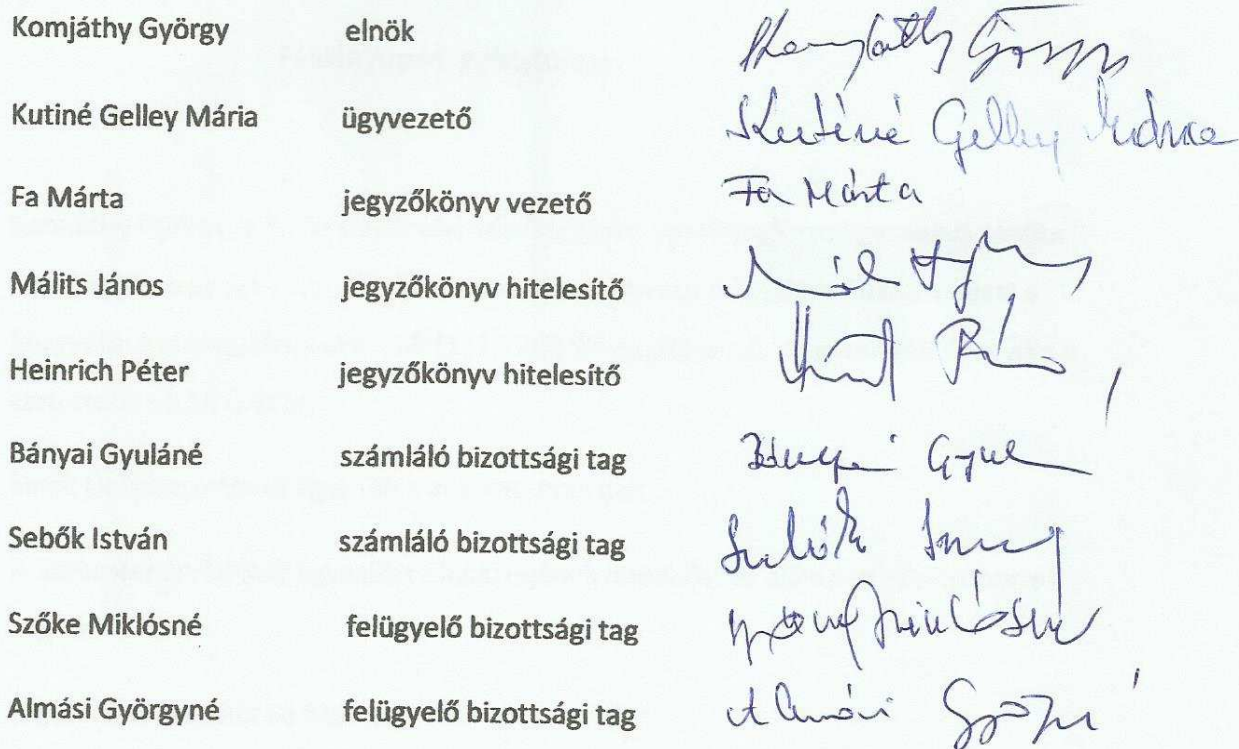 Komjáthy György elnök Komjáthy György
Kutiné Gelley Mária ügyvezető Kutiné Gelley Mária
Fa Márta jegyzőkönyv vezető Fa Márta
Málits János jegyzőkönyv hitelesítő
Heinrich Péter jegyzőkönyv hitelesítő
Bányai Gyuláné számláló bizottsági tag Bányai
Sebők István számláló bizottsági tag Sebők
Szőke Miklósné felügyelő bizottsági tag Szőke Miklósné
Almási Györgyné felügyelő bizottsági tag Almási